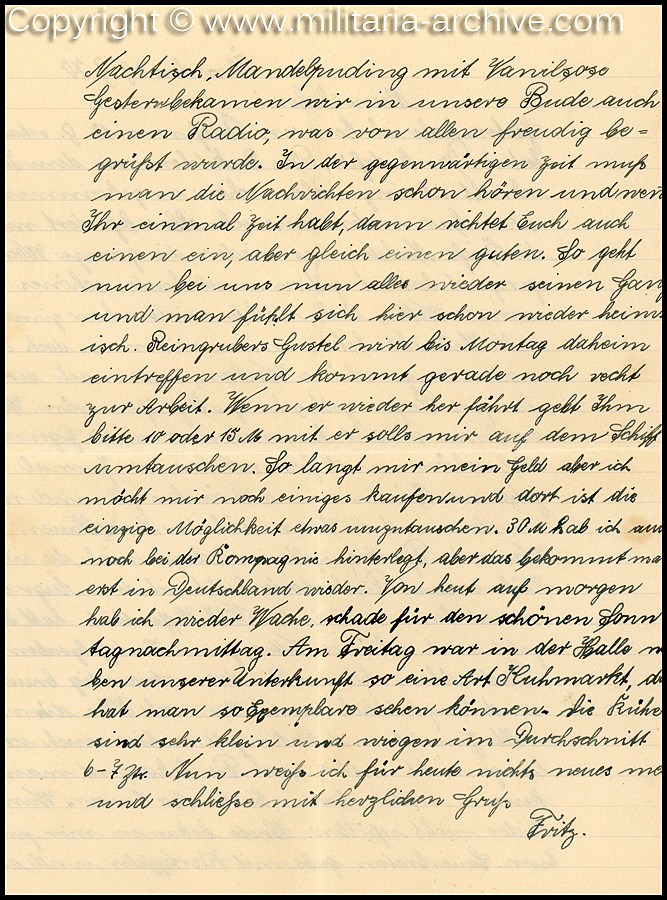 Copyright © www.militaria-archive.com
Nachtisch, Mandelpuding mit Vanilsose
Gestern bekamen wir in unsere Bude auch
einen Radio, was von allen freudig be=
grüßt wurde. In der gegenwärtigen Zeit muß
man die Nachrichten schon hören und wen
Ihr einmal Zeit habt, dann richtet Euch auch
einen ein, aber gleich einen guten. So geht
nun bei uns nun alles wieder seinen Gang
und man fühlt sich hier schon wieder heim
isch. Reingrubers Gustel wird bis Montag daheim
eintreffen und kommt gerade noch recht
zur Arbeit. Wenn er wieder her fährt gebt Ihm
bitte 10 oder 15 M mit er solls mir auf dem Schiff
umtauschen. So langt mir mein Geld aber ich
möcht mir noch einiges kaufen und dort ist die
einzige Möglichkeit etwas umzutauschen. 30 M hab ich
noch bei der Kompagnie hinterlegt, aber das bekommt ma
erst in Deutschland wieder. Von heut auf morgen
hab ich wieder Wache, schade für den schönen Sonn
tagnachmittag. Am Freitag war in der Halle
ben unserer Unterkunft so eine Art Kuhmarkt, da
hat man so Exemplare sehen können. Die Kühe
sind sehr klein und wiegen im Durchschnitt
6-7 Ztr. Nun weiß ich für heute nichts neues me
und schließe mit herzlichen Gruß
Fritz.